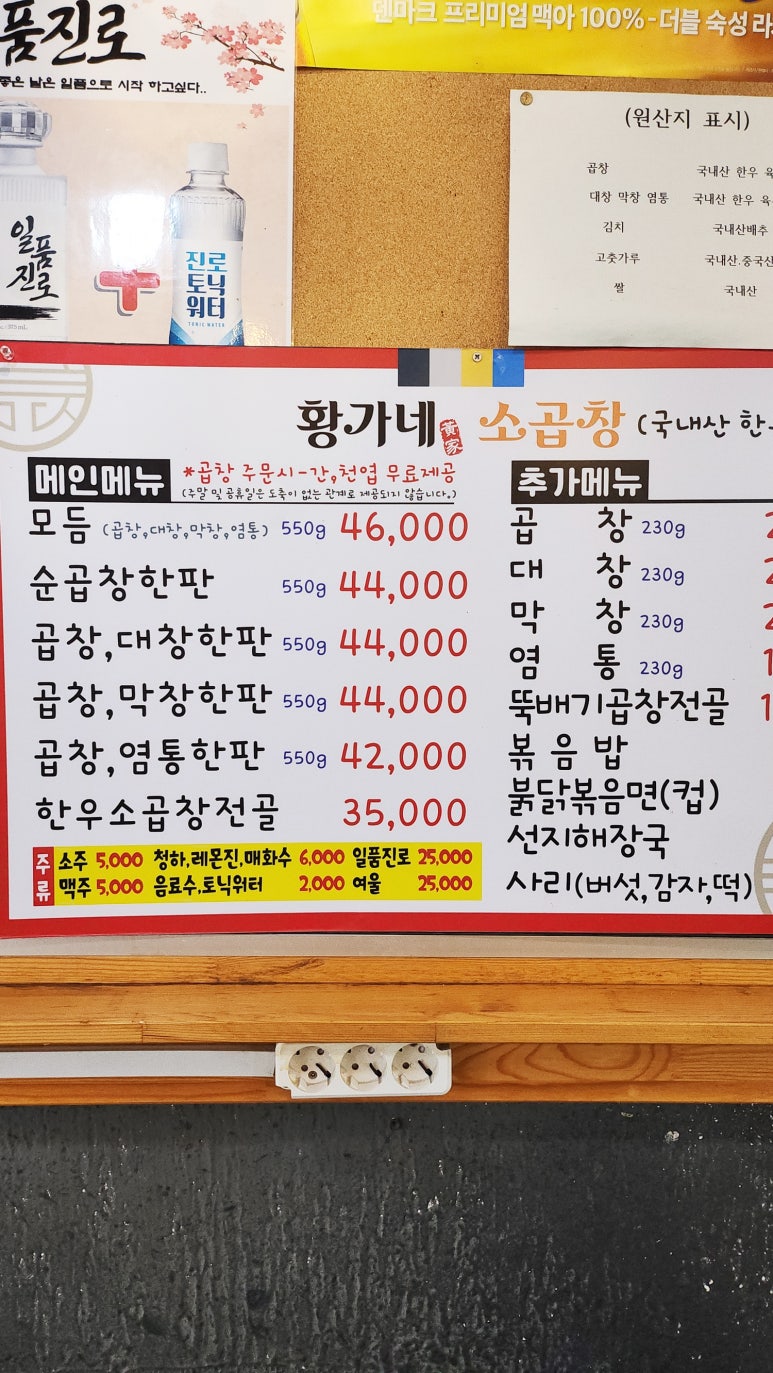 품진로
좋은 날은 일품으로 시작 하고싶다..
일품
진로
진로
토닉
워터
TONIC WATER
덴마크 프리미엄 맥아 100%-더블 숙성
(원산지 표시)
곱창 국내산 한우
대창 막창 염통 국내산 한우
김치 국내산배추
고춧가루 국내산.중국산
쌀 국내산
황가네 黃家 소곱창 (국내산 한
메인메뉴 *곱창 주문시-간,천엽 무료제공
(주말 및 공휴일은 도축이 없는 관계로 제공되지 않습니다.)
모듬 (곱창,대창,막창,염통) 550g 46,000
순곱창한판 550g 44,000
곱창,대창한판 550g 44,000
곱창,막창한판 550g 44,000
곱창,염통한판 550g 42,000
한우소곱창전골 35,000
주류
소주 5,000 청하,레몬진,매화수 6,000 일품진로 25,000
맥주 5,000 음료수,토닉워터 2,000 여울 25,000
추가메뉴
곱 창 230g
대 창 230g
막 창 230g
염 통 230g
뚝배기곱창전골
볶음밥
붉닭볶음면(컵)
선지해장국
사리(버섯,감자,떡)